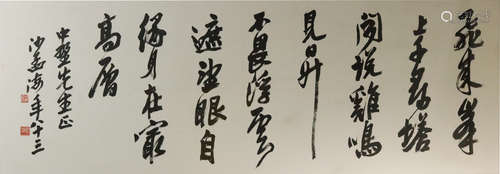 飛来峯
上千尋塔
聞説雞鳴
見日升
不畏浮雲
遮望眼自
緣身在最
高層
中堅先生正
沙孟海年八十三